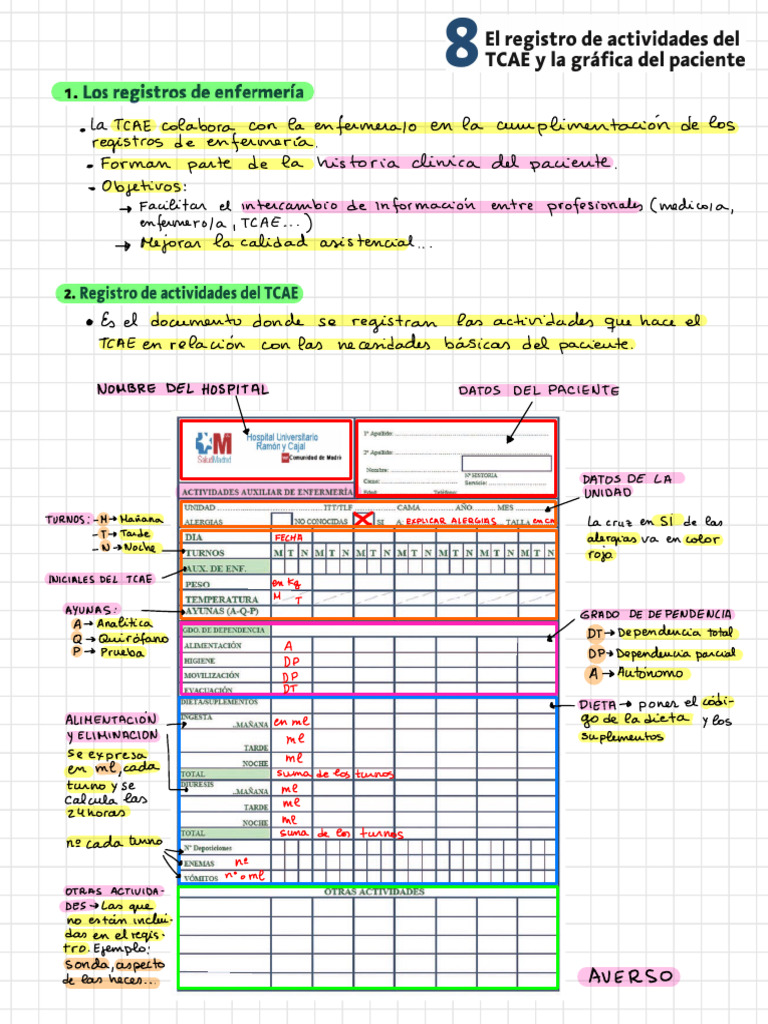 8 El registro de actividades del
TCAE y la gráfica del paciente
1. Los registros de enfermería
• La TCAE colabora con la enfermera/o en la cumplimentación de los
registros de enfermería.
- Forman parte de la historia clínica del paciente.
- Objetivos:
→ Facilitar el intercambio de información entre profesionales (medico/a,
enfermero/a, TCAE...)
→ Mejorar la calidad asistencial...
2. Registro de actividades del TCAE
• Es el documento donde se registran las actividades que hace el
TCAE en relación con las necesidades básicas del paciente.
NOMBRE DEL HOSPITAL
DATOS DEL PACIENTE
SaludMadrid
Hospital Universitario
Ramón y Cajal
Comunidad de Madrid
1º Apellido:
2º Apellido:
Nombre:
Nº HISTORIA
Cama:
Servicio:
Edad:
Teléfono:
ACTIVIDADES AUXILIAR DE ENFERMERÍA
DATOS DE LA
UNIDAD
UNIDAD TIT/TLF CAMA AÑO. MES
ALERGIAS NO CONOCIDAS X SI A: EXPLICAR ALERGIAS TALLA en cm
La cruz en SÍ de las
alergias va en color
rojo
TURNOS: - M → Mañana
- T → Tarde
- N → Noche
DIA FECHA
TURNOS M T N M T N M T N M T N M T N M T N M T N
AUX. DE ENF.
PESO en Kg
TEMPERATURA M T
AYUNAS (A-Q-P)
INICIALES DEL TCAE
AYUNAS:
A → Analítica
Q → Quirófano
P → Prueba
GDO. DE DEPENDENCIA
ALIMENTACIÓN A
HIGIENE DP
MOVILIZACIÓN DP
EVACUACIÓN DT
GRADO DE DEPENDENCIA
DT → Dependencia total
DP → Dependencia parcial
A → Autónomo
DIETA/SUPLEMENTOS
INGESTA
..MAÑANA en ml
TARDE ml
NOCHE ml
TOTAL suma de los turnos
DIURESIS
..MAÑANA ml
TARDE ml
NOCHE ml
TOTAL suma de los turnos
Nº Deposiciones
ENEMAS nº
VÓMITOS nº o ml
DIETA → poner el códi-
go de la dieta y los
suplementos
ALIMENTACIÓN
y ELIMINACIÓN
Se expresa
en ml, cada
turno y se
calcula las
24 horas
nº cada turno
OTRAS ACTIVIDADES
OTRAS ACTIVIDA-
DES → Las que
no están inclui-
das en el regis-
tro. Ejemplo:
Sonda, aspecto
de las heces...
AVERSO